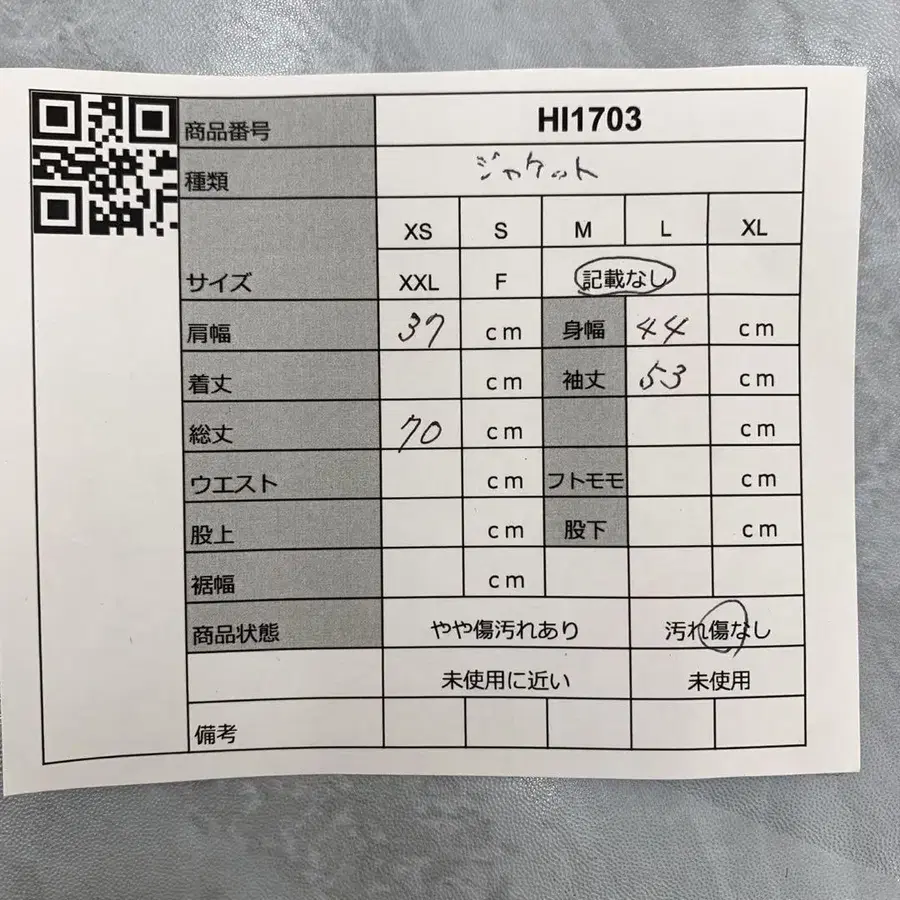 商品番号 HI1703
種類 ジャケット
XS S M L XL
サイズ XXL F 記載なし
肩幅 37 cm 身幅 44 cm
着丈 cm 袖丈 53 cm
総丈 70 cm cm
ウエスト cm フトモモ cm
股上 cm 股下 cm
裾幅 cm
商品状態 やや傷汚れあり 汚れ傷なし
未使用に近い 未使用
備考